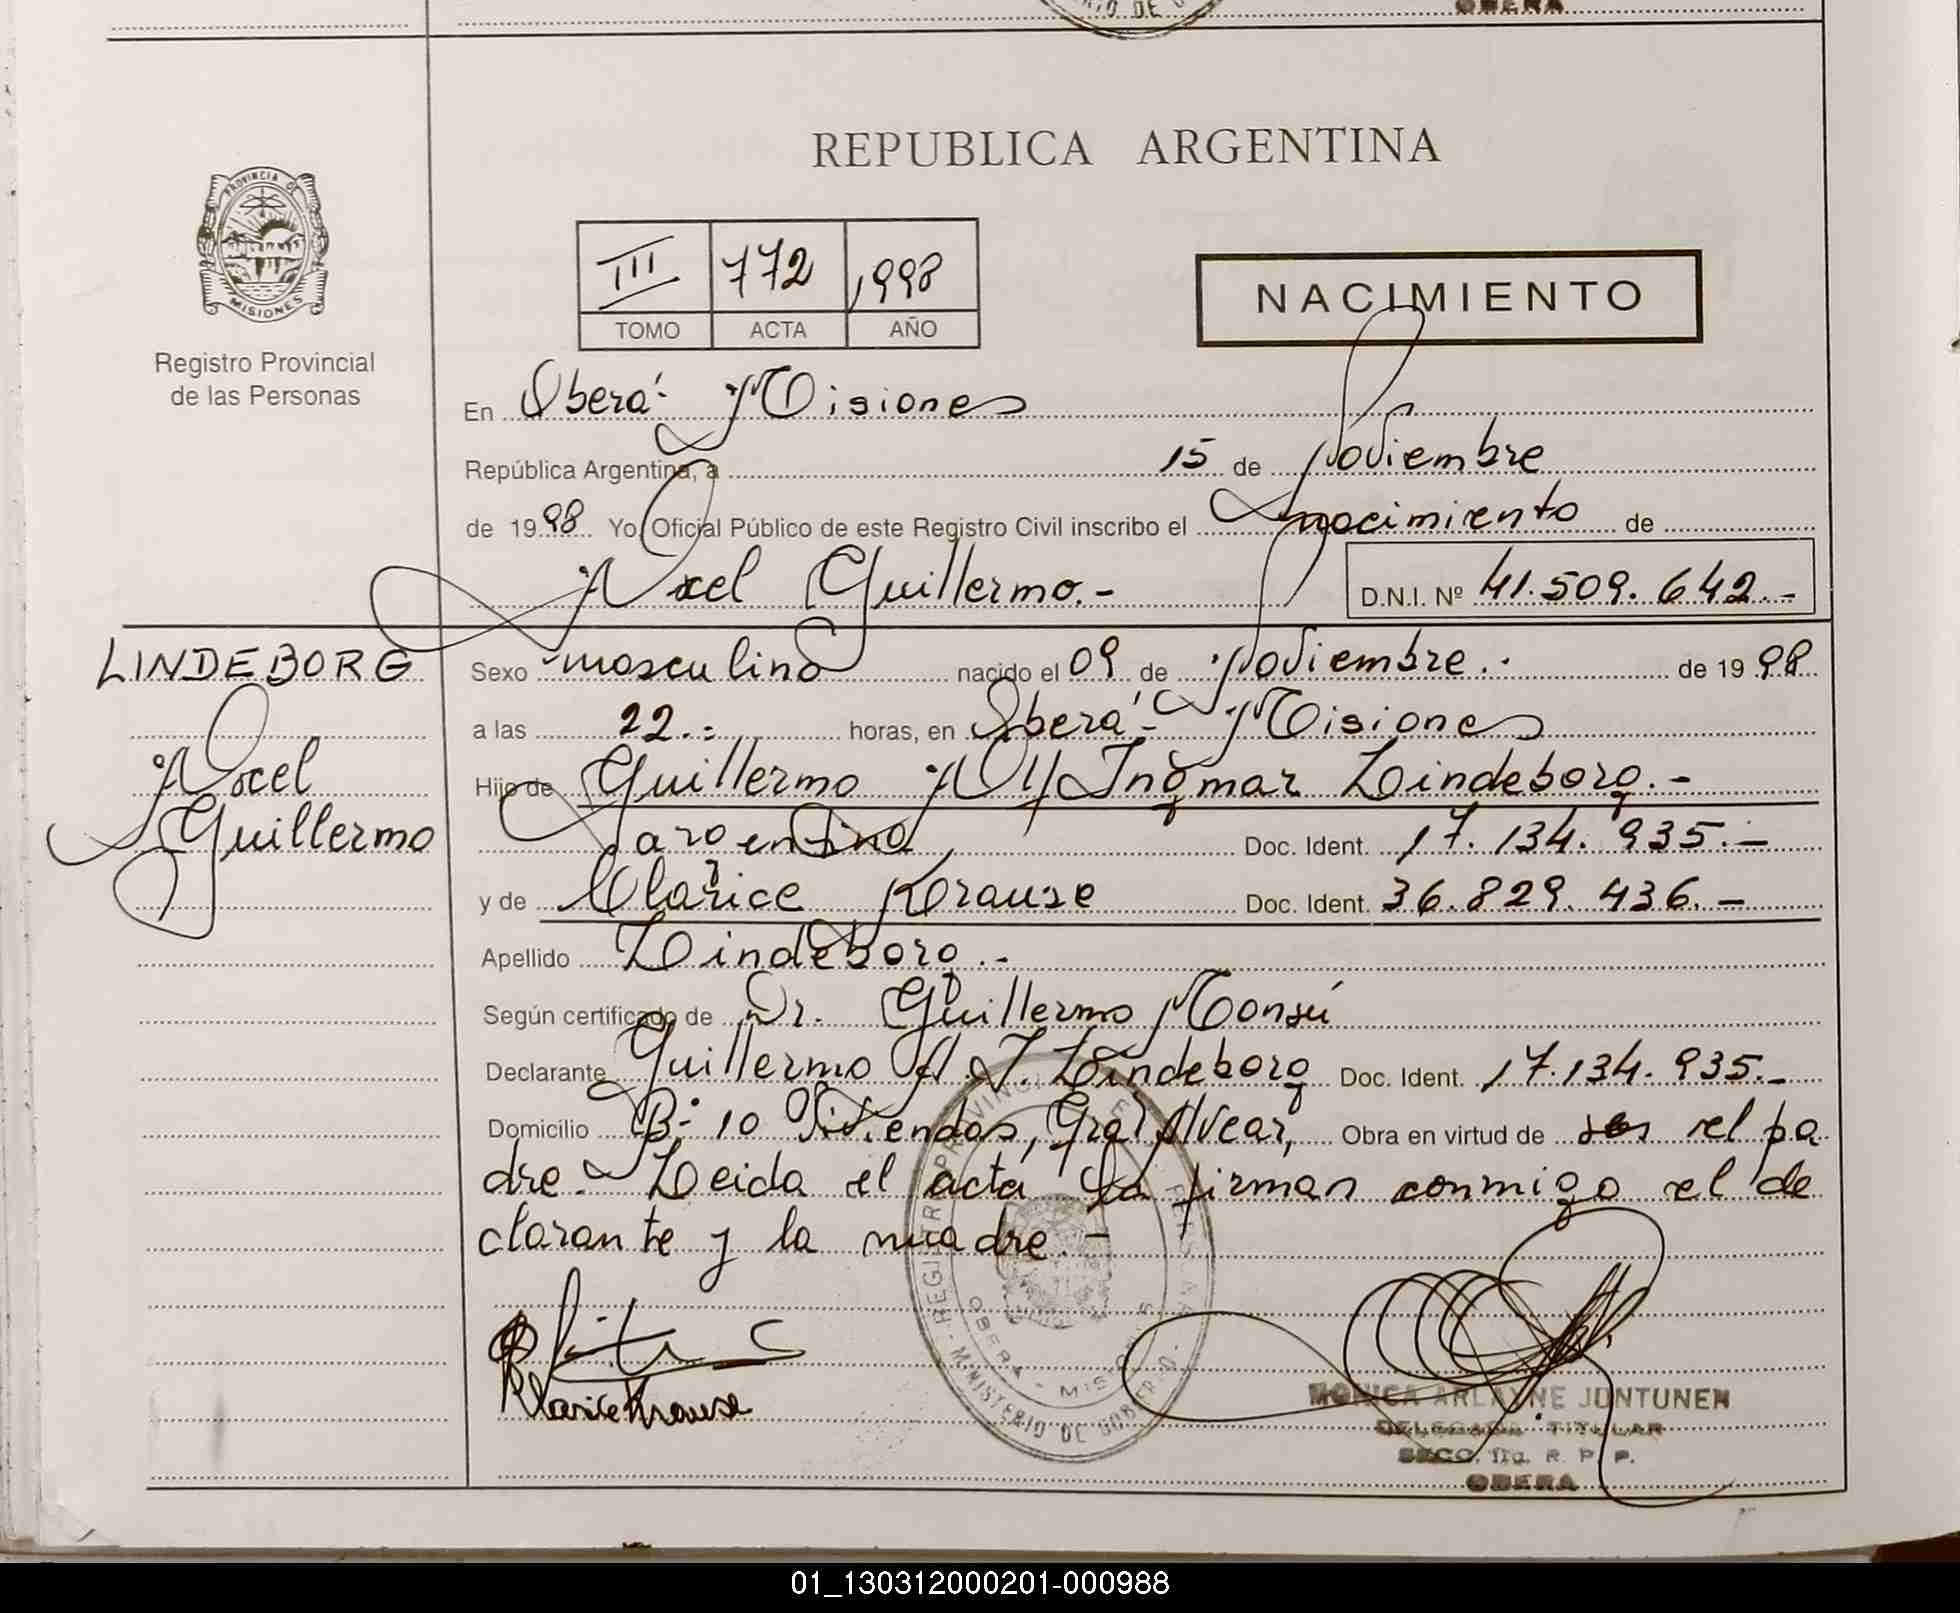 OBERA
PROVINCIA DE
MISIONES
Registro Provincial
de las Personas
REPUBLICA ARGENTINA
III 772 1998
TOMO ACTA AÑO
NACIMIENTO
En Oberá- Misiones
República Argentina, a 15 de Noviembre
de 1998 Yo, Oficial Público de este Registro Civil inscribo el nacimiento de
Axel Guillermo.-
D.N.I. Nº 41.509.642.-
LINDEBORG
Axel
Guillermo
Sexo masculino nacido el 09 de Noviembre.. de 1998
a las 22.: horas, en Oberá- Misiones
Hijo de Guillermo Alf Ingmar Lindeborg.-
argentino, Doc. Ident. 17.134.935.-
y de Clarice Krause Doc. Ident. 36.829.436.-
Apellido Lindeborg.-
Según certificado de Dr. Guillermo Monsú
Declarante Guillermo A. I. Lindeborg Doc. Ident. 17.134.935.-
Domicilio Bº 10 Viviendas, Gral Alvear, Obra en virtud de ser el pa
dre.- Leida el acta la firman conmigo el de
clarante y la madre.-
Clarice Krause
MINISTERIO DE GOBIERNO
OBERA - MISIONES
MONICA ARLAYNE JUNTUNEN
DELEGADA TITULAR
SECC. 1ra. R. P. P.
OBERA
01_130312000201-000988